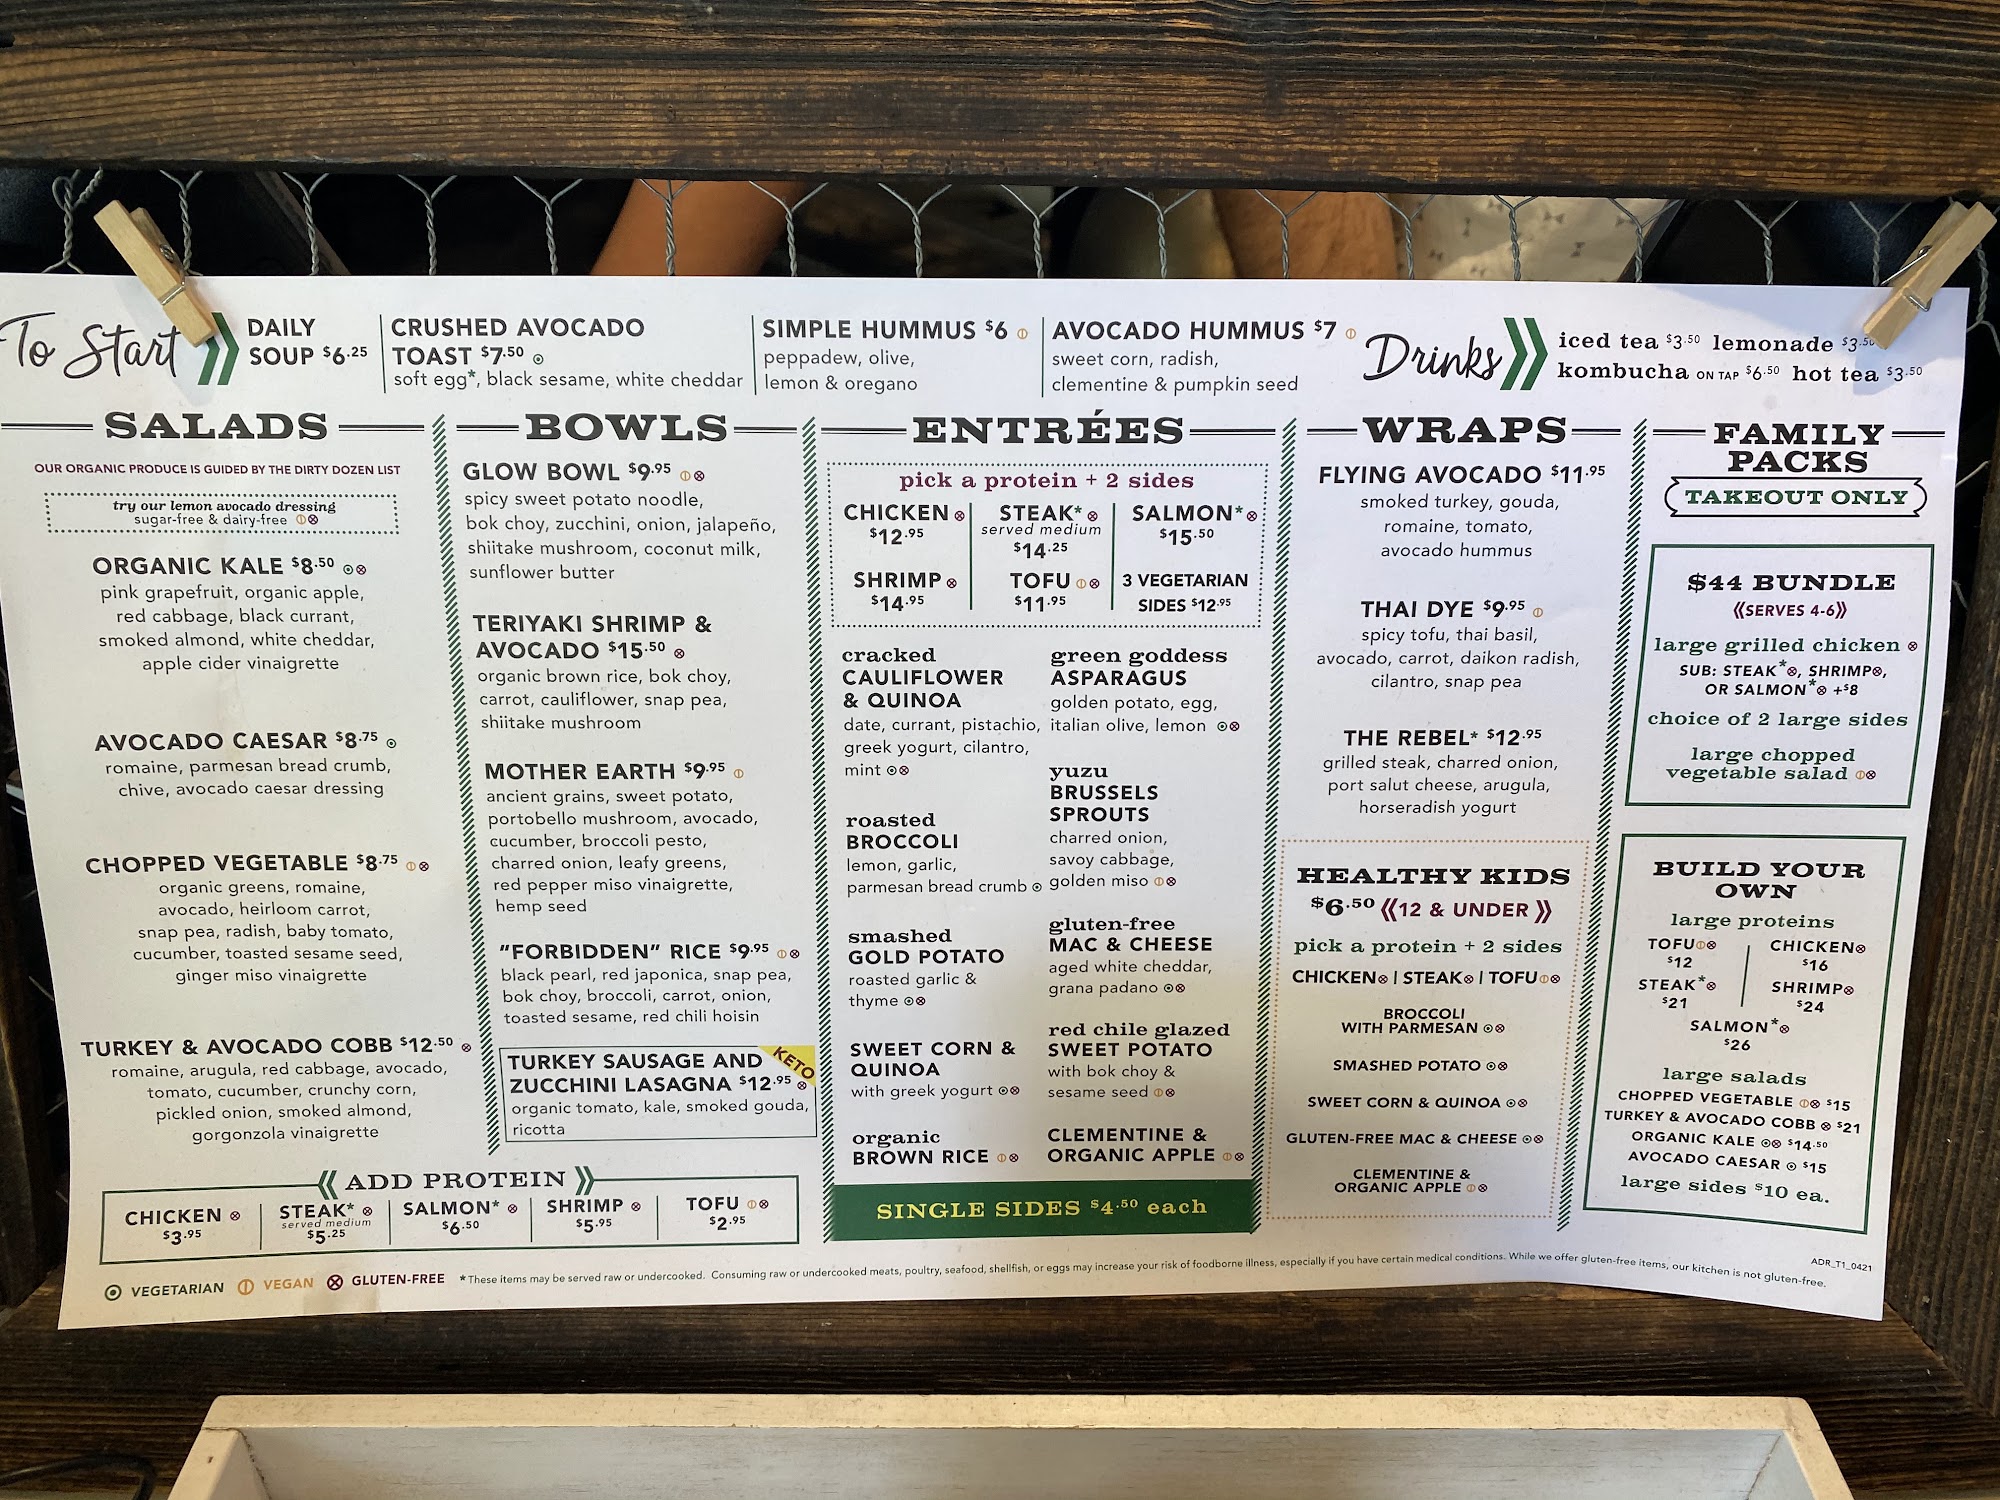 To Start
DAILY
SOUP $6.25
CRUSHED AVOCADO
TOAST $7.50
soft egg*, black sesame, white cheddar
SIMPLE HUMMUS $6
peppadew, olive,
lemon & oregano
AVOCADO HUMMUS $7
sweet corn, radish,
clementine & pumpkin seed
Drinks
iced tea $3.50 lemonade $3.50
kombucha ON TAP $6.50 hot tea $3.50
SALADS
OUR ORGANIC PRODUCE IS GUIDED BY THE DIRTY DOZEN LIST
try our lemon avocado dressing
sugar-free & dairy-free
ORGANIC KALE $8.50
pink grapefruit, organic apple,
red cabbage, black currant,
smoked almond, white cheddar,
apple cider vinaigrette
AVOCADO CAESAR $8.75
romaine, parmesan bread crumb,
chive, avocado caesar dressing
CHOPPED VEGETABLE $8.75
organic greens, romaine,
avocado, heirloom carrot,
snap pea, radish, baby tomato,
cucumber, toasted sesame seed,
ginger miso vinaigrette
TURKEY & AVOCADO COBB $12.50
romaine, arugula, red cabbage, avocado,
tomato, cucumber, crunchy corn,
pickled onion, smoked almond,
gorgonzola vinaigrette
BOWLS
GLOW BOWL $9.95
spicy sweet potato noodle,
bok choy, zucchini, onion, jalapeño,
shiitake mushroom, coconut milk,
sunflower butter
TERIYAKI SHRIMP &
AVOCADO $15.50
organic brown rice, bok choy,
carrot, cauliflower, snap pea,
shiitake mushroom
MOTHER EARTH $9.95
ancient grains, sweet potato,
portobello mushroom, avocado,
cucumber, broccoli pesto,
charred onion, leafy greens,
red pepper miso vinaigrette,
hemp seed
"FORBIDDEN" RICE $9.95
black pearl, red japonica, snap pea,
bok choy, broccoli, carrot, onion,
toasted sesame, red chili hoisin
TURKEY SAUSAGE AND
ZUCCHINI LASAGNA $12.95
KETO
organic tomato, kale, smoked gouda,
ricotta
ADD PROTEIN
CHICKEN
$3.95
STEAK*
served medium
$5.25
SALMON*
$6.50
SHRIMP
$5.95
TOFU
$2.95
ENTRÉES
pick a protein + 2 sides
CHICKEN
$12.95
STEAK*
served medium
$14.25
SALMON*
$15.50
SHRIMP
$14.95
TOFU
$11.95
3 VEGETARIAN
SIDES $12.95
cracked
CAULIFLOWER
& QUINOA
date, currant, pistachio,
greek yogurt, cilantro,
mint
roasted
BROCCOLI
lemon, garlic,
parmesan bread crumb
smashed
GOLD POTATO
roasted garlic &
thyme
SWEET CORN &
QUINOA
with greek yogurt
organic
BROWN RICE
green goddess
ASPARAGUS
golden potato, egg,
italian olive, lemon
yuzu
BRUSSELS
SPROUTS
charred onion,
savoy cabbage,
golden miso
gluten-free
MAC & CHEESE
aged white cheddar,
grana padano
red chile glazed
SWEET POTATO
with bok choy &
sesame seed
CLEMENTINE &
ORGANIC APPLE
SINGLE SIDES $4.50 each
WRAPS
FLYING AVOCADO $11.95
smoked turkey, gouda,
romaine, tomato,
avocado hummus
THAI DYE $9.95
spicy tofu, thai basil,
avocado, carrot, daikon radish,
cilantro, snap pea
THE REBEL* $12.95
grilled steak, charred onion,
port salut cheese, arugula,
horseradish yogurt
HEALTHY KIDS
$6.50 12 & UNDER
pick a protein + 2 sides
CHICKEN | STEAK | TOFU
BROCCOLI
WITH PARMESAN
SMASHED POTATO
SWEET CORN & QUINOA
GLUTEN-FREE MAC & CHEESE
CLEMENTINE &
ORGANIC APPLE
FAMILY
PACKS
TAKEOUT ONLY
$44 BUNDLE
SERVES 4-6
large grilled chicken
SUB: STEAK*, SHRIMP,
OR SALMON* +$8
choice of 2 large sides
large chopped
vegetable salad
BUILD YOUR
OWN
large proteins
TOFU
$12
CHICKEN
$16
STEAK*
$21
SHRIMP
$24
SALMON*
$26
large salads
CHOPPED VEGETABLE $15
TURKEY & AVOCADO COBB $21
ORGANIC KALE $14.50
AVOCADO CAESAR $15
large sides $10 ea.
VEGETARIAN VEGAN GLUTEN-FREE *These items may be served raw or undercooked. Consuming raw or undercooked meats, poultry, seafood, shellfish, or eggs may increase your risk of foodborne illness, especially if you have certain medical conditions. While we offer gluten-free items, our kitchen is not gluten-free.
ADR_T1_0421